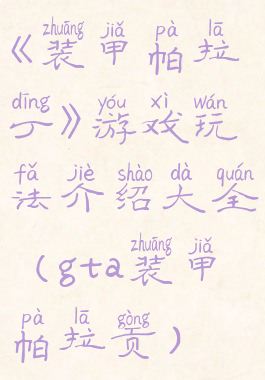 zhuāng jiǎ pà lā
《装甲帕拉
dīng yóu xì wán
丁》游戏玩
fǎ jiè shào dà quán
法介绍大全
zhuāng jiǎ
(gta装甲
pà lā gòng
帕拉贡)